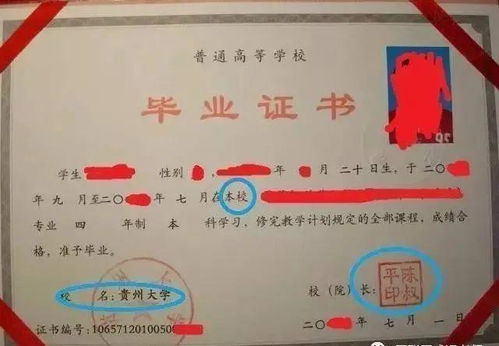 普通高等学校
毕业证书
学生 性别 , 年 月二十日生,于二〇
年九月至二〇 年七月在本校
专业 四 年制 本 科学习,修完教学计划规定的全部课程,成绩合
格,准予毕业。
校 名:贵州大学
校(院)长:
陈叔平印
证书编号:10657120100500
二〇 年七月一日